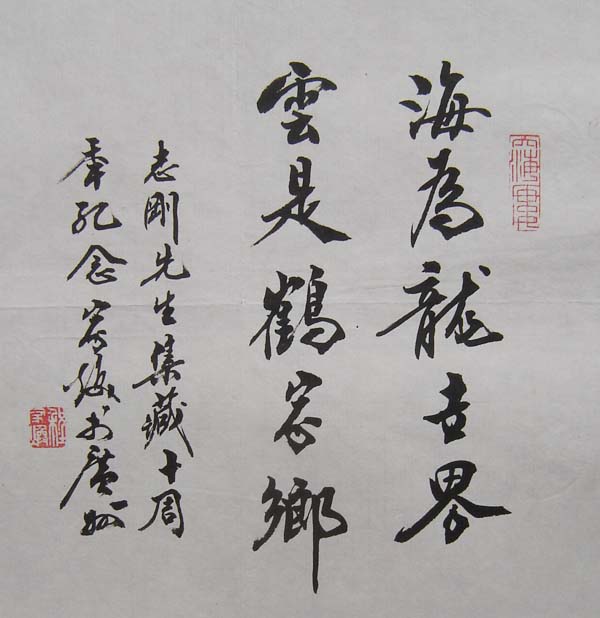 海為龍世界
雲是鶴家鄉
志剛先生集藏十周
年紀念 廣州